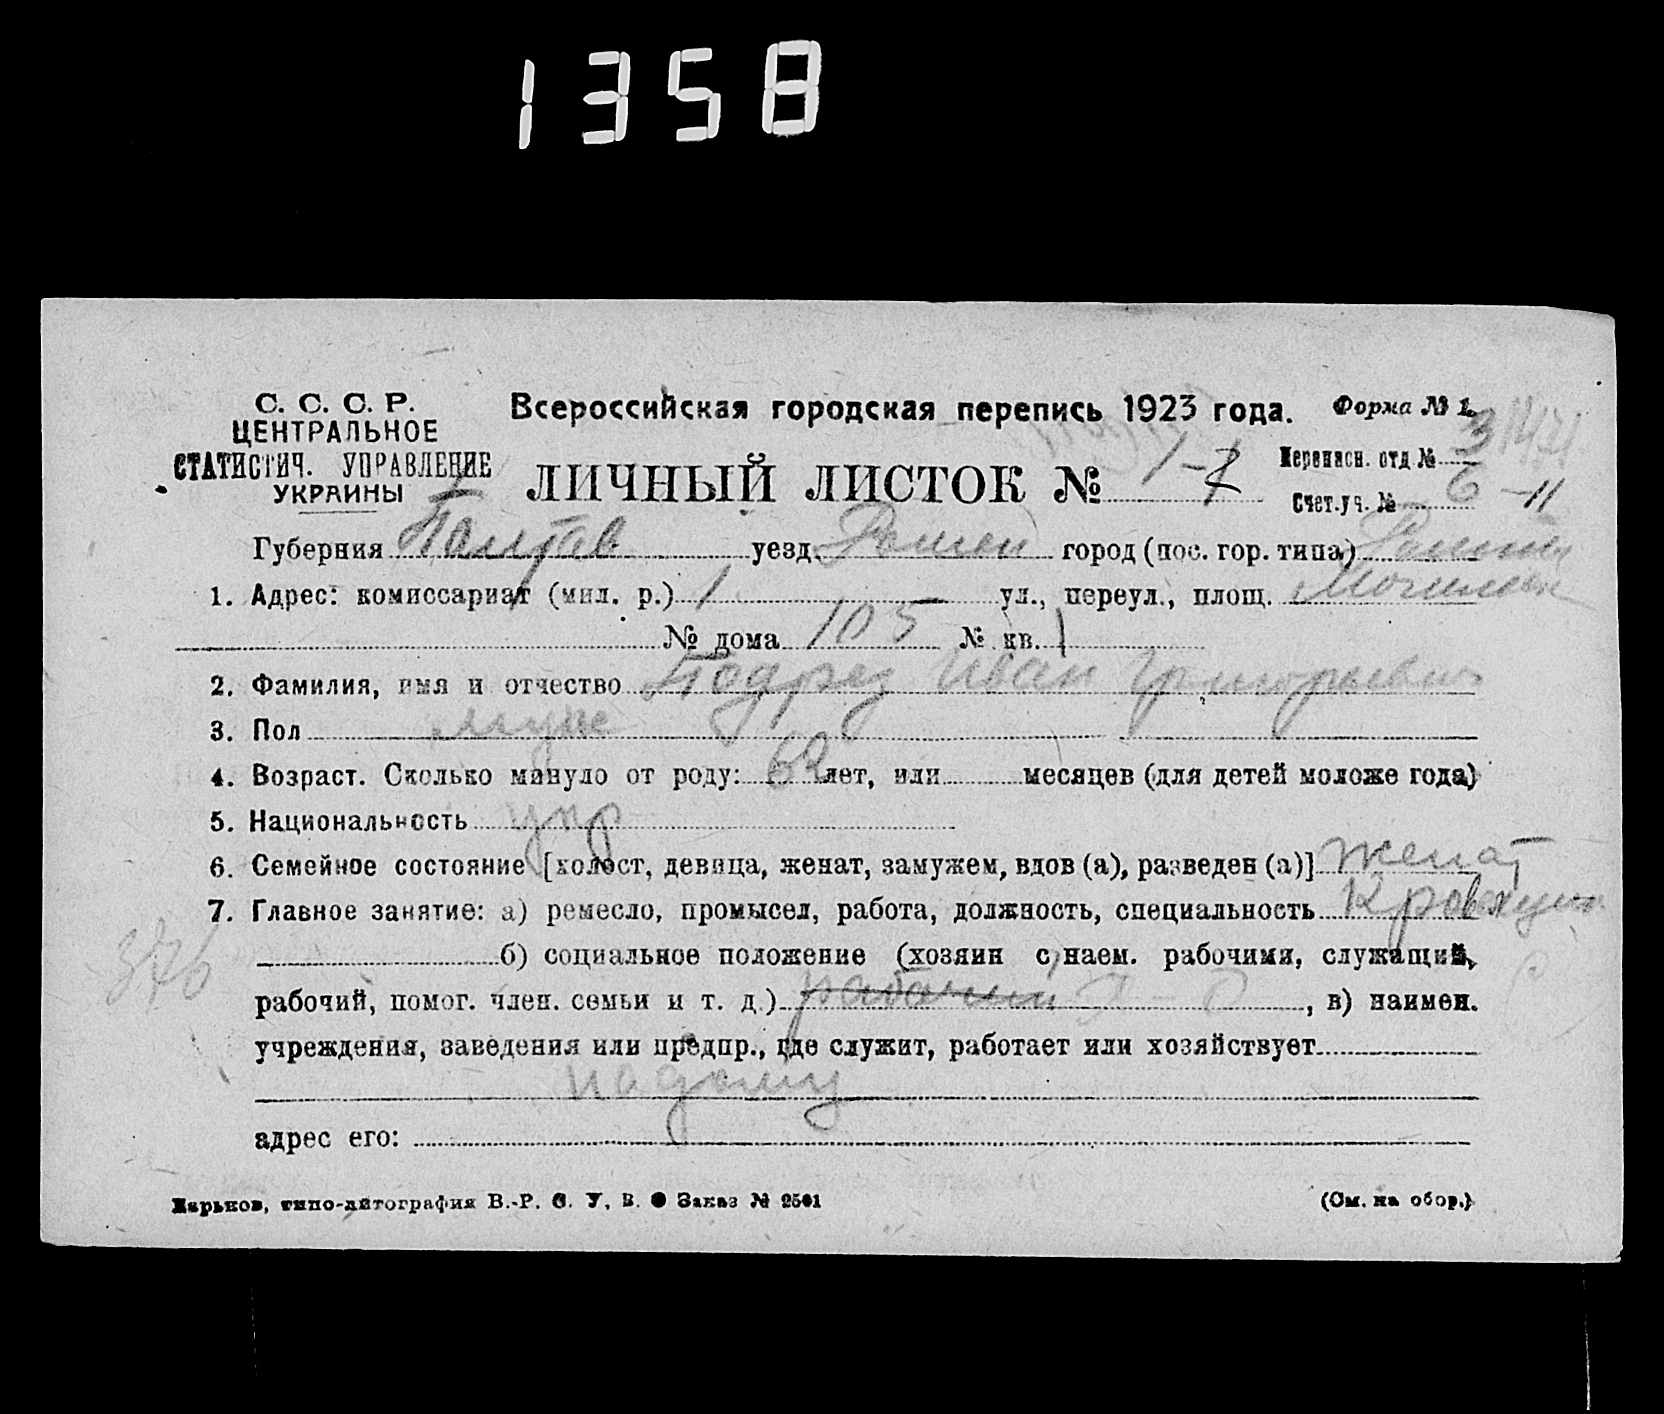 1358
С. С. С. Р.
ЦЕНТРАЛЬНОЕ
СТАТИСТИЧ. УПРАВЛЕНИЕ
УКРАИНЫ
Всероссийская городская перепись 1923 года.
Форма № 1.
ЛИЧНЫЙ ЛИСТОК № 1-
Переписн. отд № 3
Счет.уч. № 6 - 11
Губерния Полтав уезд. Ромен город (пос. гор. типа)
1. Адрес: комиссариат (мил. р.) 1 ул., переул., площ.
№ дома 105 № кв. 1
2. Фамилия, имя и отчество Подрез Иван Григорьевич
3. Пол муж
4. Возраст. Сколько минуло от роду: 62 лет, или месяцев (для детей моложе года)
5. Национальность укр
6. Семейное состояние [холост, девица, женат, замужем, вдов (а), разведен (а)] женат
7. Главное занятие: а) ремесло, промысел, работа, должность, специальность
376
б) социальное положение (хозяин с наем. рабочими, служащий,
рабочий, помог. член. семьи и т. д.) рабочий , в) наимен.
учреждения, заведения или предпр., где служит, работает или хозяйствует
на дому
адрес его:
Харьков, типо-литография В.-Р. С. У. В. Заказ № 2501
(См. на обор.)